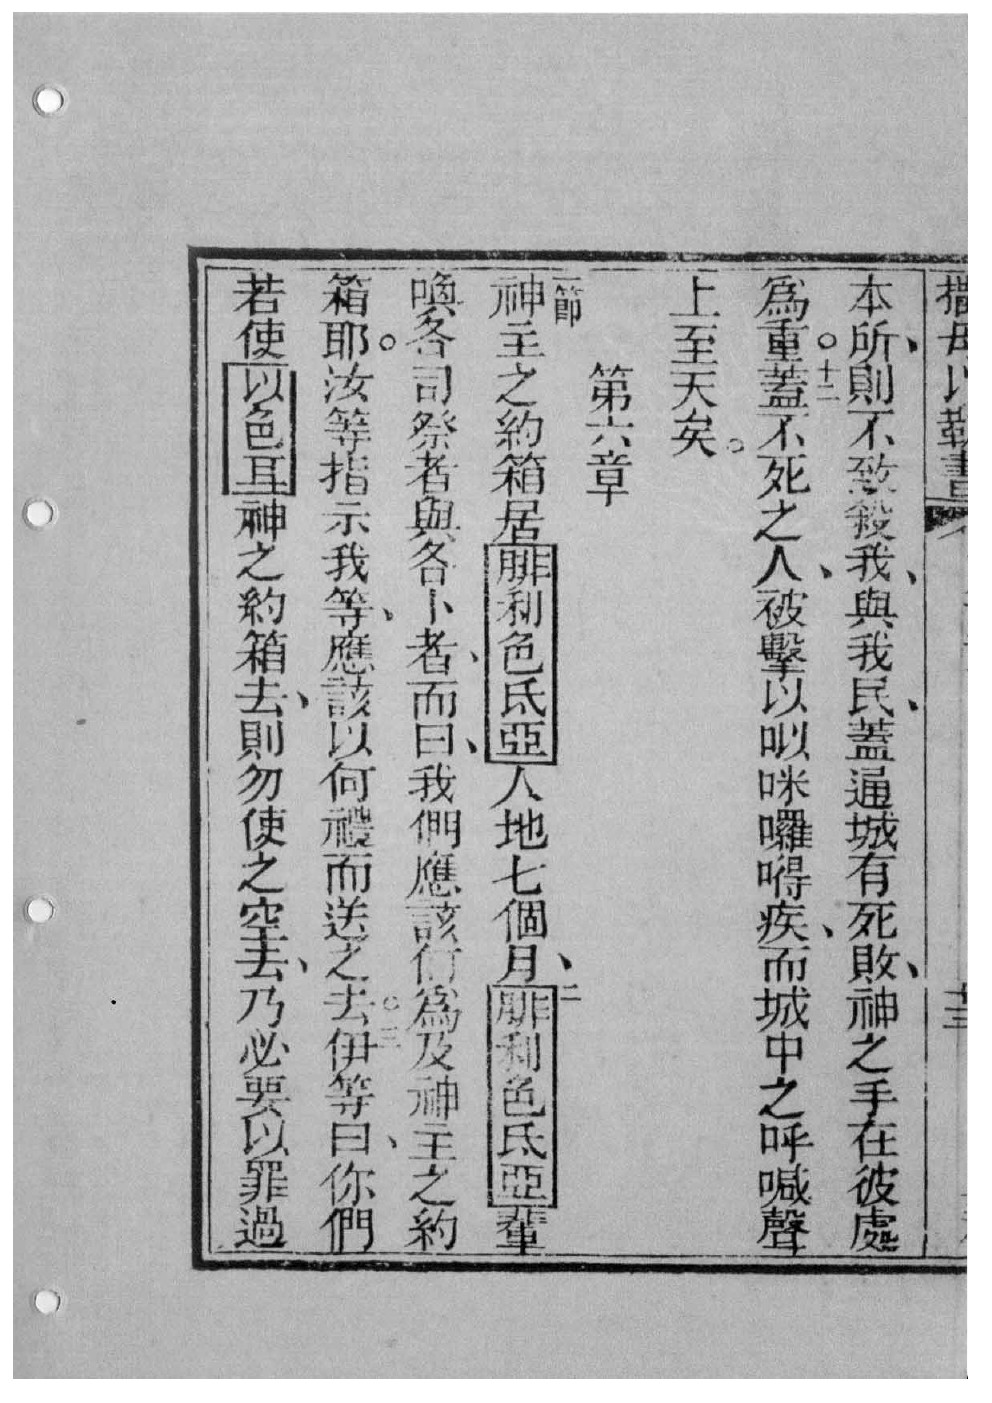 撒母以勒書
本所、則不致殺我、與我民、蓋通城有死敗、神之手在彼處
爲重。十二蓋不死之人、被擊以㕥咪囉嘚疾、而城中之呼喊聲
上至天矣。
第六章
一節神主之約箱居腓利色氐亞人地七個月、二腓利色氐亞輩
喚各司祭者與各卜者、而曰、我們應該何爲及神主之約
箱耶。汝等指示我等、應該以何禮而送之去。三伊等曰、你們
若使以色耳神之約箱去、則勿使之空去、乃必要以罪過